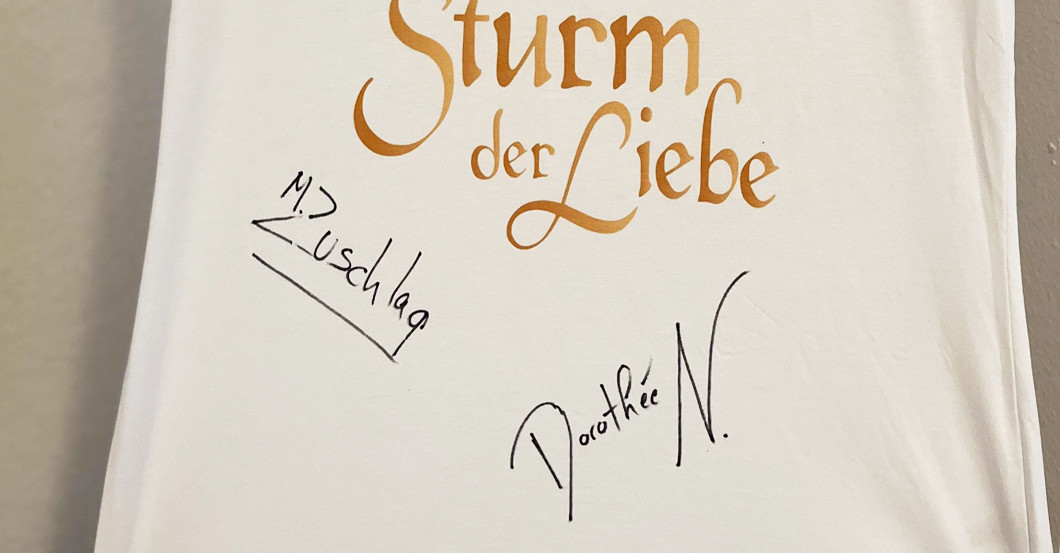 Sturm
der Liebe
M. Zuschlag
Dorothée N.